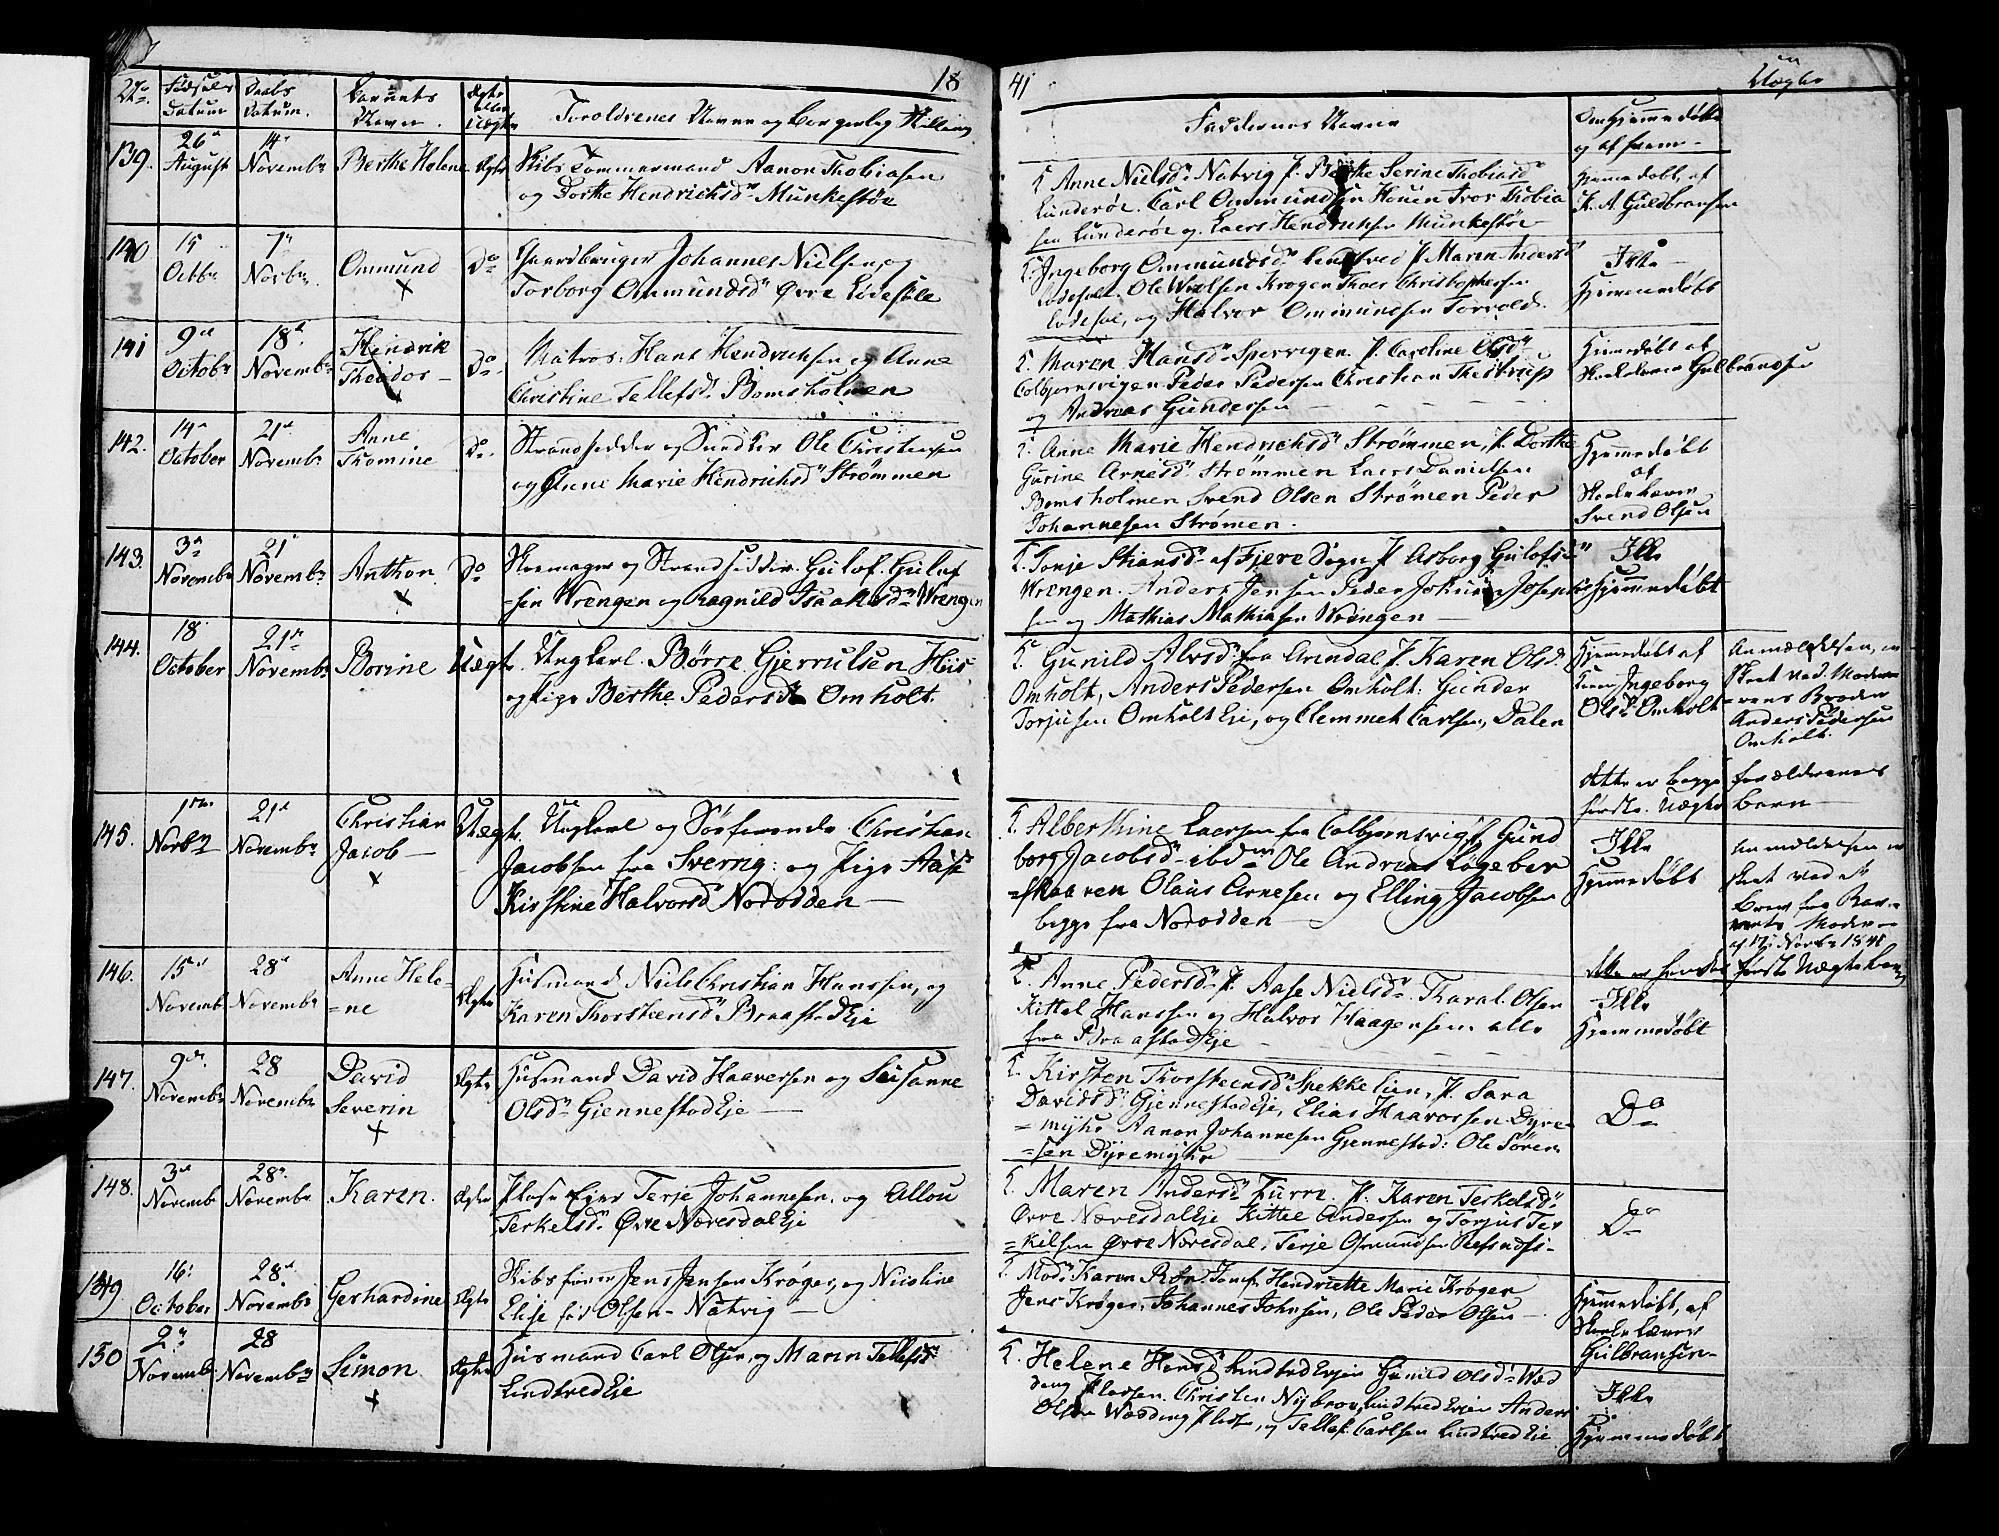 18 41
No. Fødsels Datum Daabs Datum. Barnets Navn. Ægte eller Uægte Foreldrenes Navne og Borgerlig Stilling
Faddernes Navne Om Hjemmedøbt og af hvem Uægte
139. 26de August 14de Novembr Berthe Helene Ægte
Skibs Tommermand Aanon Thobiasen
og Dorthe Hendrichsdr Munkestøe
Anne Nielsdr Natvig P. Berthe Serine Thobiasdr
Lunderøe. Carl Ommundsen Houen Iver Thobia
sen Lunderøe og Laers Hendrichsen Munkestøe
Hjemmedøbt, af
K. A. Guldbransen
140 15 Octbr 7de Novbr. Ommund Do
Gaardbruger Johannes Nielsen, og
Torborg Ommundsdr Øvre Lødesøle
Ingeborg Ommundsdr P. Maren Andersd
Lødesøl. Ole Nielsen Krogen Thoer Christophersen
Lødesøl, og Halvor Ommundsen Torvold.
Ikke
Hjemmedøbt
141 9de Octobr 18de Novembr Hendrik Theodor Do.
Matros. Hans Hendrichsen og Anne
Christine Tellefsdr. Bomsholmen
Maren Hansdr Spervigen. P. Caroline Olsdr
Colbjørnsvigen Peder Pedersen Christian Thestrup
og Andreas Gundersen
Hjemmedøbt af
Skolelærer Gulbrandsen
142. 14de October 21de Novembr Anne Thomine Do.
Strandsidder og Snedker Ole Christensen
og Anne Marie Hendrichsdr Strømmen
Anne Marie Hendrichsdr Strømmen, P. Dorthe
Gurine Arnesdr Strømmen Laers Danielsen
Bomsholmen Svend Olsen Strømen Peder
Johannesen Strømen.
Hjemmedøbt
af
Skolelærer
Svend Olsen
143. 3de Novembr 21de Novembr Anthon Do
Skomager og Strandsidder Gulof. Gulof
sen Wrengen og Ragnild Isaaksdr Wrengen
Tonje Stiansdr af Fjere Sogn P. Asborg Gulofsdr
Wrengen. Anders Jensen Peder Johan Joseph
sen og Mathias Mathiasen Wrengen
Ikke
Hjemmedøbt
144. 18 October 21de Novembr Borine Uægte
Ungkarl. Børre Gjerrulsen His
og Pige Berthe Pedersdr Omholt.
Gunild Alvsdr fra Arendal P. Karen Olsdr
Omholt, Anders Pedersen Omholt: Gunder
Torjusen Omholt Eie, og Clemmet Carlsen, Dalen
Hjemmedøbt af
Ingeborg
Olsdr Omholt
Anmældelsen, er
skeet ved Moder
ens Broder
Anders Pedersen
Omholt.
dette er begge forældrenes
første Uægte barn
145. 1ste Novbr 21de Novembr Christian Jacob Uægte
Ungkarl og Søefarende Christian
Jacobsen fra Sverrig: og Pige Aase
Kirstine Halvorsdr Norodden
Alberthine Laersen fra Colbjørnsvig P. Gund
borg Jacobsdr ibdm Ole Andreas Løgeber
skaaren Olaus Arnesen og Elling Jacobsen
begge fra Norodden
Ikke
Hjemmedøbt
Anmeldelsen er
skeet ved et
Brev fra Bar
nets Moder
af 17. Novbr 1841
dette er hendes første Uægte barn
146. 15de Novemb 28de Novembr Anne Hele=ne Ægte
Husmand Niels Christian Hanssen, og
Karen Thorstensdr Braastad Eje
Anne Pedersdr P. Aase Nielsdr Tharal. Olsen
Kittel Hanssen og Halvor Haagensen alle
fra Braastad Eje
Ikke
Hjemmedøbt
147. 9de Novembr 28 Novembr David Severin Ægte
Husmand David Haaversen og Susanne
Olsdr Gjennestad Eje
Kirsten Thorsteensdr Spekkelien, P. Sara
Davidsdr Gjennestad Eje, Elias Haavorsen Dyre
=myhr Aanon Johannesen Gjennestad: Ole Søren
=sen Dyremyhr
Do
148. 3de Novemb 28de Novembr Karen. Ægte
Terje Johannesen. og Allou
Terkelsdr Øvre Næresdal Eje
Maren Andersdr Furre. P. Karen Terkelsdr
Øvre Næresdal Eje Kittel Andersen og Torjus Ter
=kilsen Øvre Noresdal, Terje Osmundsen
Do
149 16de October 28de Novembr Gerhardine Ægte
Skibsfører Jens Jensen Krøger, og Nicoline
Elise fød Olsen Natvig
Mad. Karen Jomf. Hendriette Marie Krøger
Jens Krøger, Johannes Johnsen, Ole Peder Olsen
Hjemmedøbt, af
Skole Lærer
Gulbransen
150 2de Novembr 28 Novembr Simon Ægte
Husmand Carl Olsen, og Maren Tellefsdr
Lindtved Eje
Helene Hansdr Lindtved Ejen Gunild Olsdr Wed
ding Pladsen. Christen Nybroe, Lindtved Ejen Anders
Olsen Wedding Plads, og Tellef Carlsen Lindtved Eje
Ikke
Hjemmedøbt